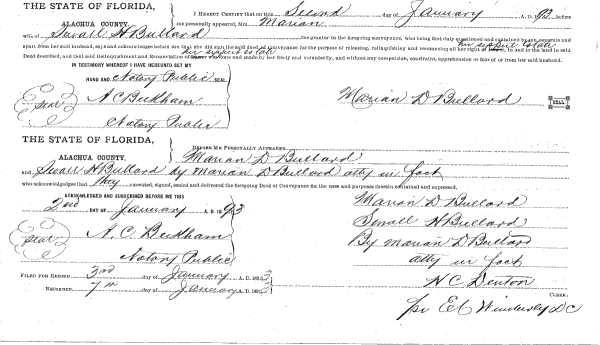 THE STATE OF FLORIDA,
ALACHUA COUNTY.
I HEREBY CERTIFY that on this Second day of January A. D. 93, before
me personally appeared, Mrs. Marian
wife of Sewall H Bullard the grantor in the foregoing conveyance, who being first duly examined by me, separate and
apart from her said husband, says and acknowledges before me that she did sign the said deed of conveyance for the purpose of releasing, relinquishing and renouncing all her right of her separate estate in and to the land in said
Deed described, and that said Relinquishment and Renunciation of her separate estate were made and done by her freely and voluntarily, and without any compulsion, constraint, apprehension or fear of or from her said husband.
IN TESTIMONY WHEREOF I HAVE HEREUNTO SET MY
HAND AND Notary Public SEAL
Seal A C Beekham
Notary Public
Marian D Bullard SEAL
THE STATE OF FLORIDA,
ALACHUA COUNTY,
BEFORE ME PERSONALLY APPEARED
Marian D Bullard
and Sewall H Bullard by Marian D Bullard atty in fact
who acknowledges that they executed, signed, sealed and delivered the foregoing Deed of Conveyance for the uses and purposes therein contained and expressed.
ACKNOWLEDGED AND SUBSCRIBED BEFORE ME THIS
2nd DAY OF January A. D. 1893
Seal A. C. Beekham
Notary Public
Marian D Bullard
Sewall H Bullard
By Marian D Bullard
atty in fact
FILED FOR RECORD 3rd day of January A. D. 1893
RECORDED 7th day of January A. D. 1893
H C Denton
CLERK.
pr E C Wimberly D C